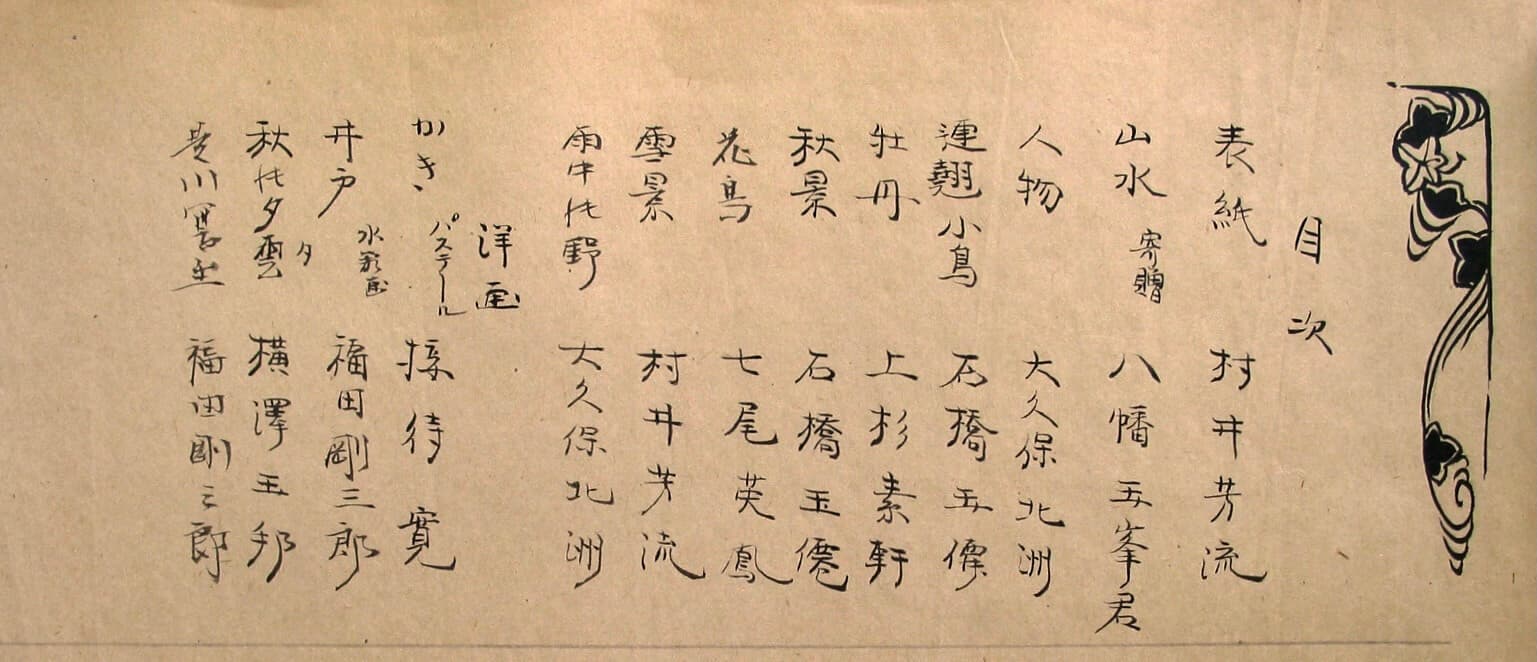 目次
表紙 村井芳流
山水 寄贈 八幡五峯君
人物 大久保北洲
連翹小鳥 石橋玉僊
牡丹 上杉素軒
秋景 石橋玉僊
花鳥 七尾英鳳
雪景 村井芳流
雨中の野 大久保北洲
洋画
かき パステール 接待寛
井戸 水彩画 福田剛三郎
秋の夕雲 〃 横澤玉邦
川 福田剛三郎